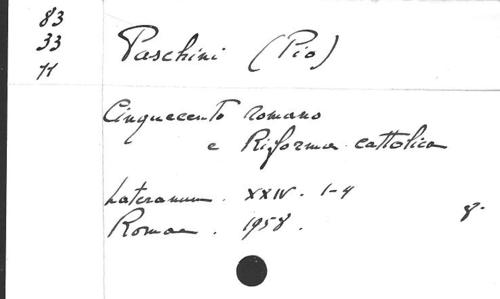 83
33
11
Paschini (Pio)
Cinquecento romano
e Riforma cattolica
Lateranum. XXIV. 1-4
Romae. 1958.
8.